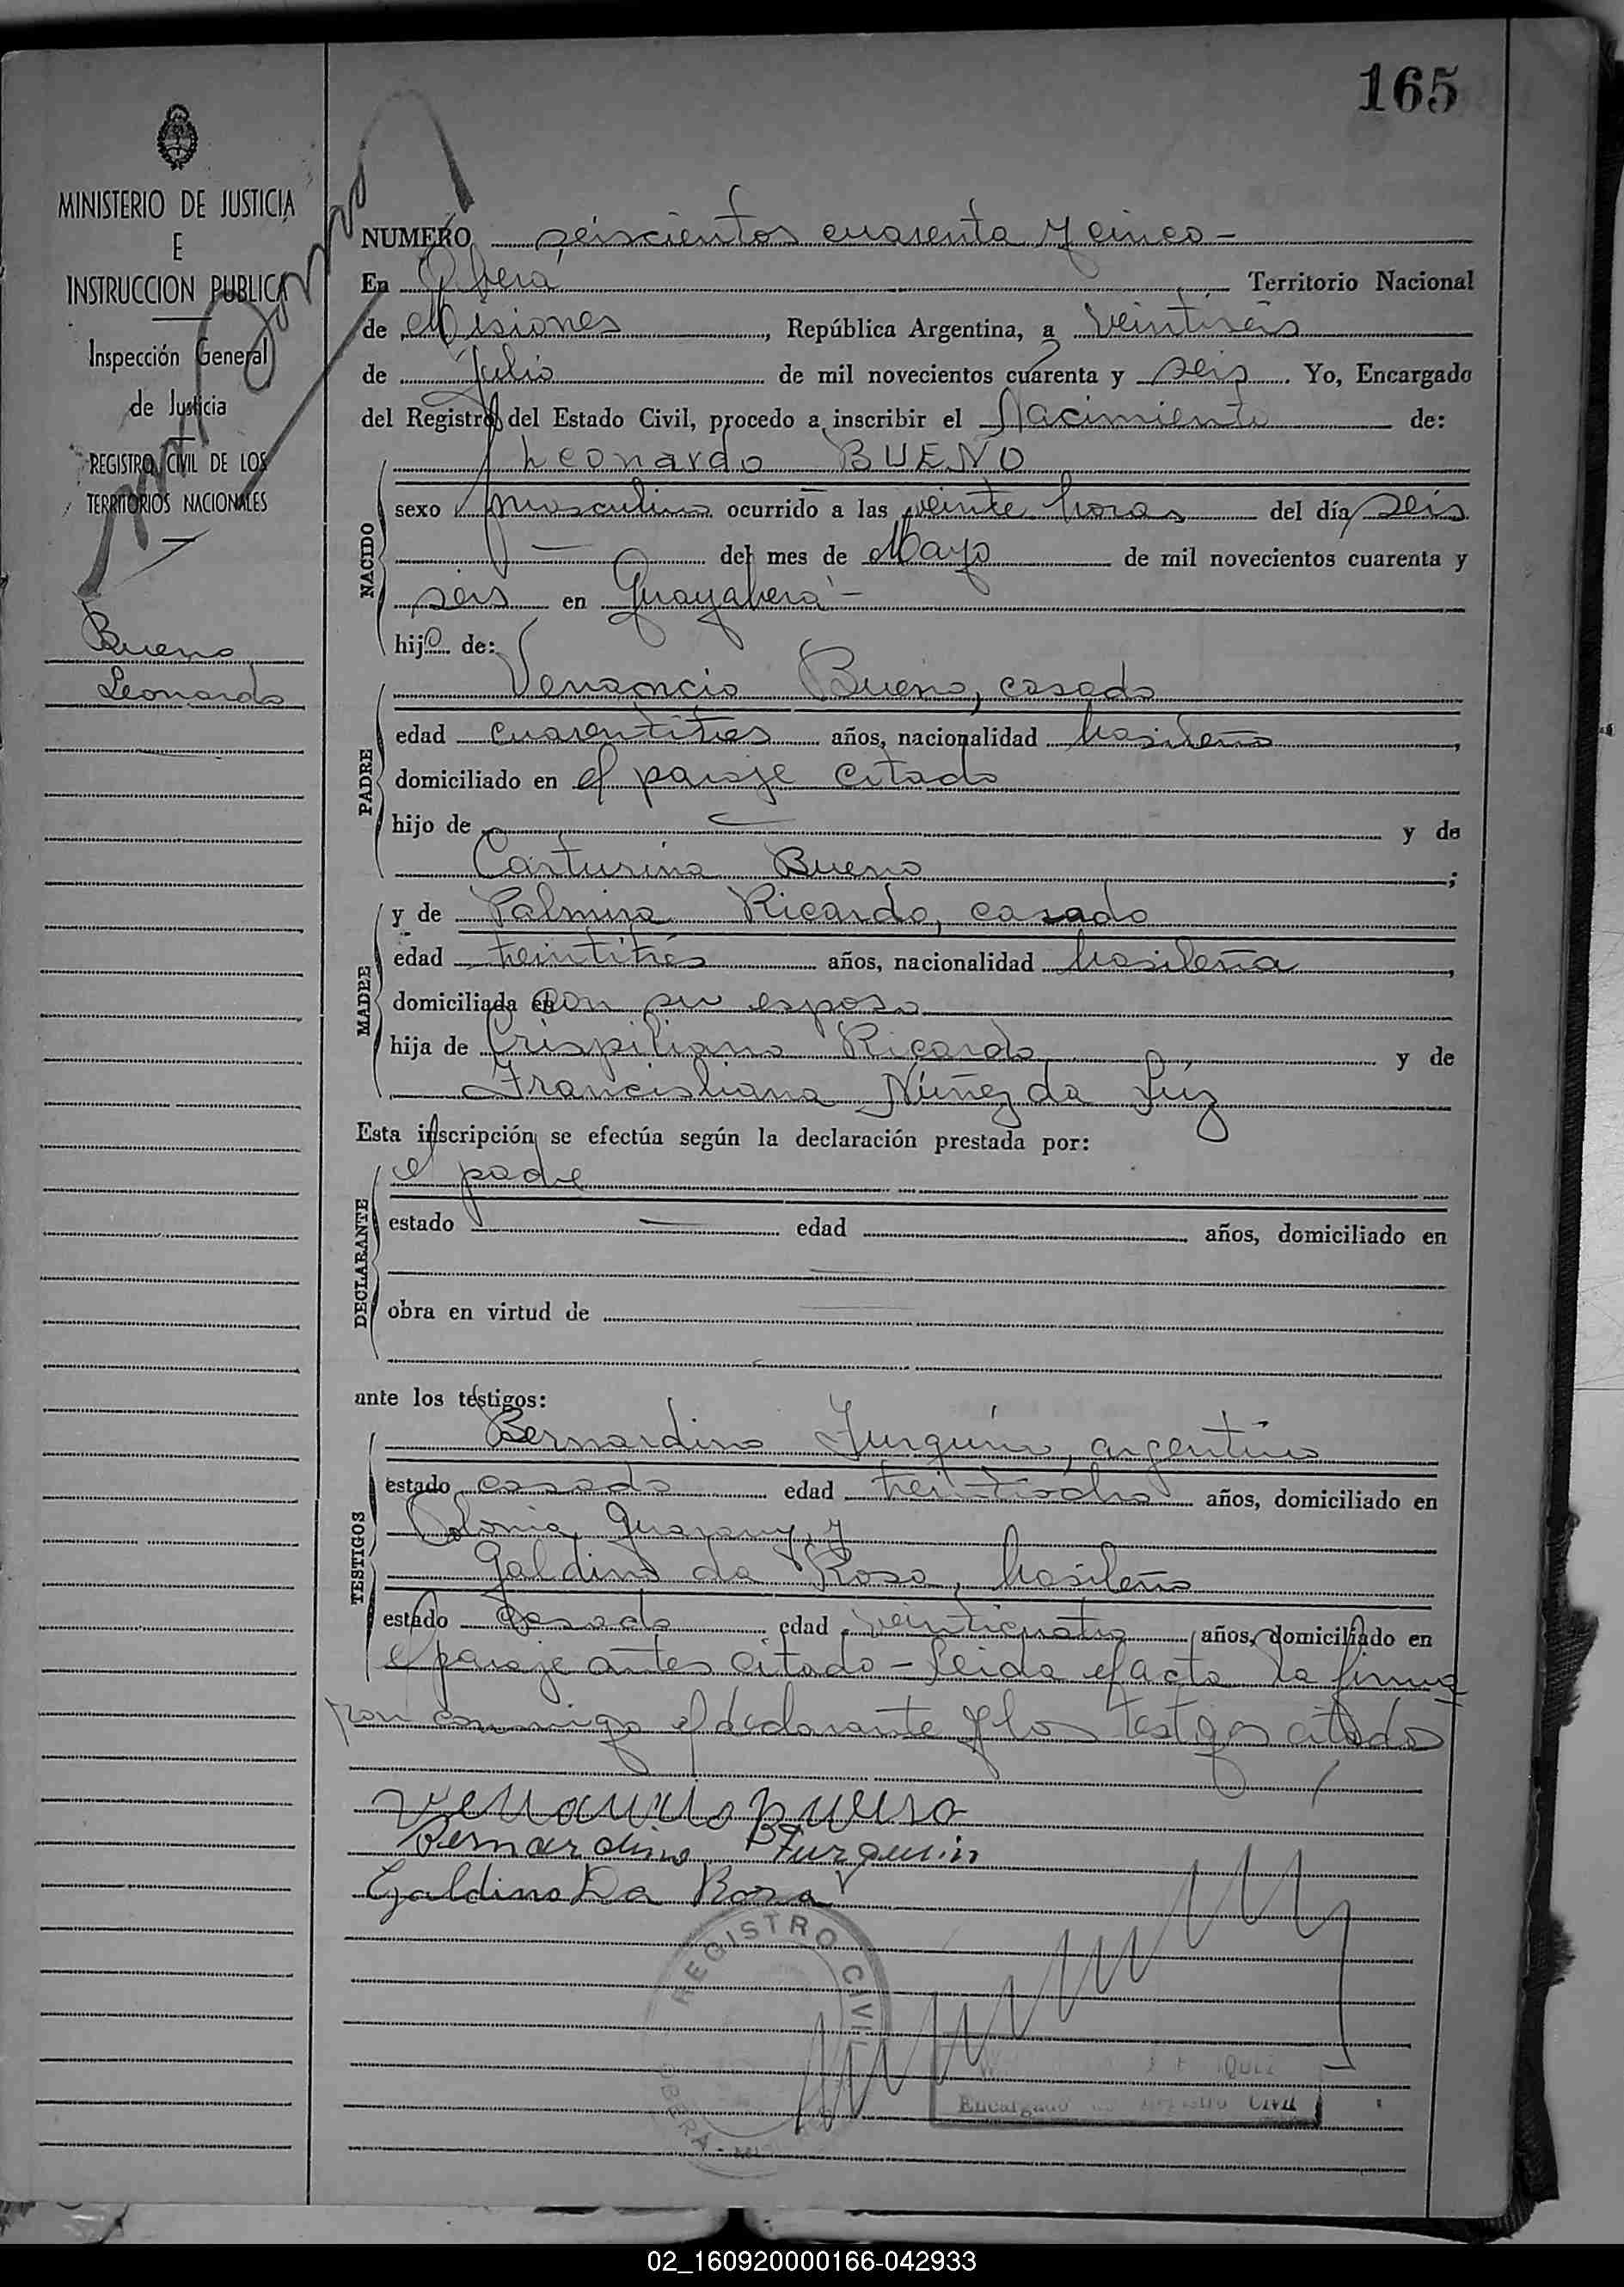 165
MINISTERIO DE JUSTICIA
E
INSTRUCCION PUBLICA
Inspección General
de Justicia
REGISTRO CIVIL DE LOS
TERRITORIOS NACIONALES
Bueno
Leonardo
NUMERO seiscientos cuarenta y cinco -
En Oberá Territorio Nacional
de Misiones, República Argentina, a veintiseis
de Julio de mil novecientos cuarenta y seis. Yo, Encargado
del Registro del Estado Civil, procedo a inscribir el Nacimiento de:
NACIDO
Leonardo BUENO
sexo masculino ocurrido a las veinte horas del día seis
— del mes de Mayo de mil novecientos cuarenta y
seis en Guayabera -
hijo de:
PADRE
Venancio Bueno, casado
edad cuarentitres años, nacionalidad brasileño,
domiciliado en el paraje citado
hijo de — y de
Carturina Bueno;
MADRE
y de Palmira Ricardo, casada
edad treintitrés años, nacionalidad brasileña,
domiciliada en con su esposo
hija de Crispiliano Ricardo y de
Francisliana Núñez da Luz
Esta inscripción se efectúa según la declaración prestada por:
DECLARANTE
el padre
estado — edad años, domiciliado en
obra en virtud de
ante los testigos:
TESTIGOS
Bernardino Furquim, argentino
estado casado edad treintiocho años, domiciliado en
Colonia Guarany, y
Galdino da Rosa, brasileño
estado casado edad veinticuatro años, domiciliado en
el paraje antes citado - Leida el acta la firma
ron conmigo el declarante y los testigos citados
Venancio Bueno
Bernardino Furquin
Galdino Da Rosa
REGISTRO CIVIL
OBERA -
Encargado Registro Civil
02_160920000166-042933